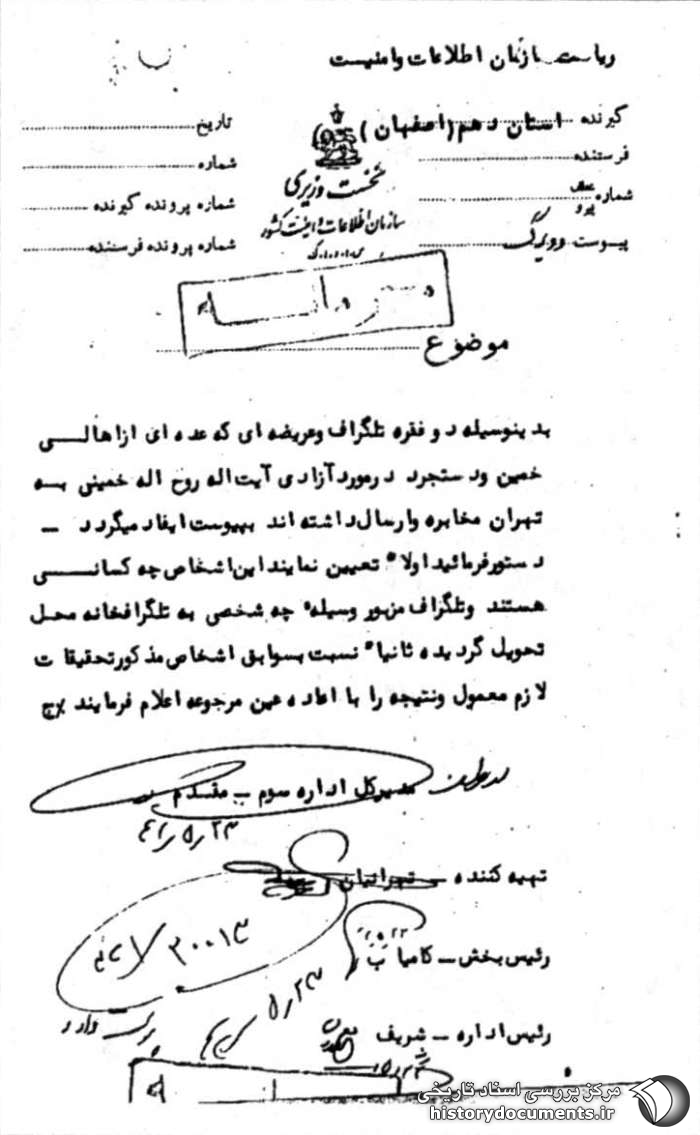 ریاست سازمان اطلاعات وامنیت
گیرنده استان دهم (اصفهان)
تاریخ
فرستنده
شماره
نخست وزیری
شماره
شماره پرونده گیرنده
سازمان اطلاعات و امنیت کشور
پیوست دوبرگ
شماره پرونده فرستنده
س.ا.و.ا.ک
محرمانه
موضوع
بدینوسیله دو فقره تلگراف وعریضه ای که عده ای ازاهالی
خمین ودستجرد درمورد آزادی آیت اله روح اله خمینی به
تهران مخابره وارسال داشته اند بپیوست ایفاد میگردد –
دستورفرمائید اولا" تعیین نمایند این اشخاص چه کسانی
هستند وتلگراف مزبور وسیله چه شخصی به تلگرافخانه محل
تحویل گردیده ثانیا" نسبت بسوابق اشخاص مذکور تحقیقات
لازم معمول ونتیجه را با اعاده عین مرجوعه اعلام فرمایند
مدیرکل اداره سوم – مقدم
۴۲/۵/۲۳
تهیه کننده – تهرانیان
رئیس بخش – کامیاب
۳۰۰۱۳
۵/۲۳
رئیس اداره – شریف
مرکز بررسی اسناد تاریخی
historydocuments.ir